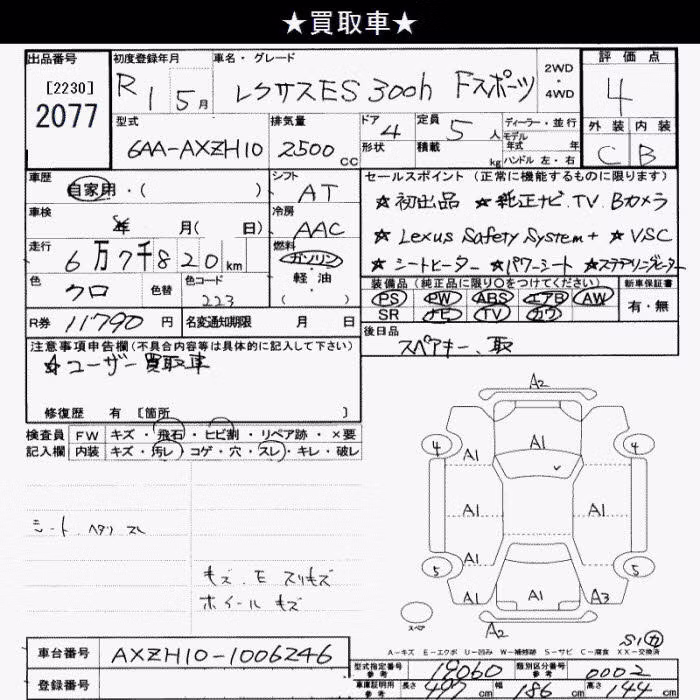 ★買取車★
出品番号 [2230] 2077
初度登録年月 R1 5月
車名・グレード レクサスES 300h Fスポーツ
2WD・4WD
評価点 4
型式 6AA-AXZH10
排気量 2500cc
ドア 4 形状
定員 5人 積載 kg
ディーラー・並行
モデル年式 年式
ハンドル 左・右
外装 C 内装 B
車歴 自家用・( )
シフト AT
車検 年 月( 日)
冷房 AAC
走行 6万7千820km
燃料 ガソリン・軽油・( )
色 クロ 色替 色コード 223
R券 11790円 名変通知期限 月 日
セールスポイント (正常に機能するものに限ります)
★初出品 ★純正ナビ.TV.Bカメラ
★Lexus Safety System+ ★VSC
★シートヒーター ★パワーシート ★ステアリングヒーター
装備品 (純正品に限り○をつけてください) 新車保証書
PS PW ABS エアB AW 有・無
SR ナビ TV カワ
後日品
スペアキー、取
注意事項申告欄 (不具合内容等は具体的に記入して下さい)
★ユーザー買取車
修復歴 有 [箇所 ]
検査員 FW キズ・飛石・ヒビ割・リペア跡・×要
記入欄 内装 キズ・汚レ・コゲ・穴・スレ・キレ・破レ
シート ヘタリ スレ
キズ.E スリキズ
ホイール キズ
A2
4 A1 A1 4
A1 A1
A1
5 A1 A3 5
スペア A2
S1 カ
A-キズ E-エクボ U-凹み W-補修跡 S-サビ C-腐食 XX-交換済
車台番号 AXZH10-1006246
登録番号
型式指定番号 参考 19060 類別区分番号 参考 0002
車庫証明用 参考 長さ 497cm 幅 186cm 高さ 144cm